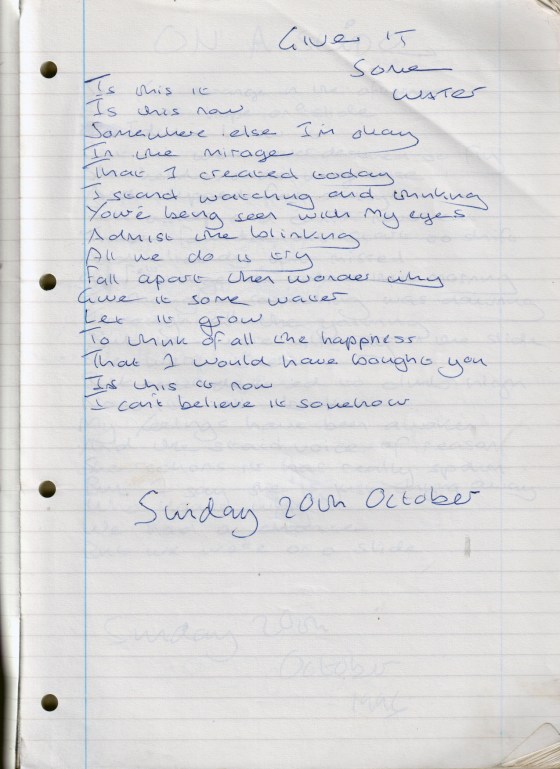 Give it
Some
Water
Is this it
Is this now
Somewhere else I'm okay
In the mirage
That I created today
I stand watching and thinking
You're being seen with my eyes
Admist the blinking
All we do is try
Fall apart then wonder why
Give it some water
Let it grow
To think of all the happness
That I would have bought you
Is this it now
I can't believe it somehow
Sunday 20th October
Sunday 20th
October